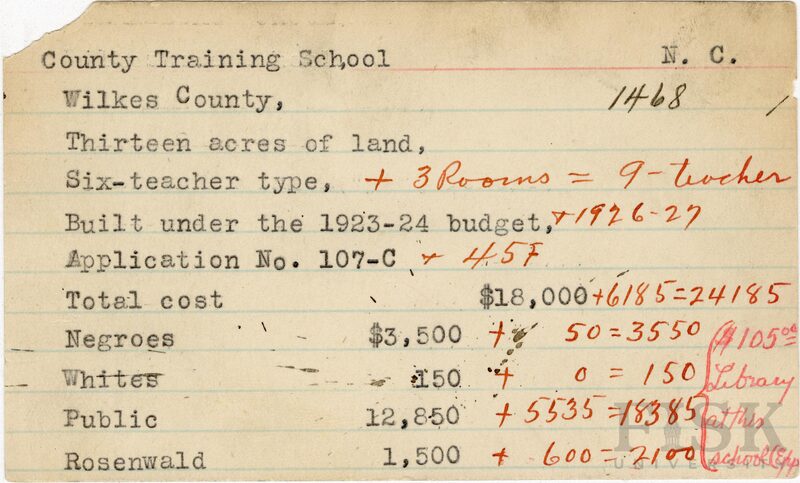 County Training School N. C.
Wilkes County, 1468 /
Thirteen acres of land,
Six-teacher type, + 3 Rooms = 9-teacher
Built under the 1923-24 budget, + 1926-27
Application No. 107-C + 45F
Total cost $18,000 + 6185 = 24185
Negroes $3,500 + 50 = 3550
Whites 150 + 0 = 150
Public 12,850 + 5535 = 18385
Rosenwald 1,500 + 600 = 2100
$105.00
Library
at this
school (Exp
FISK
UNIVERSITY